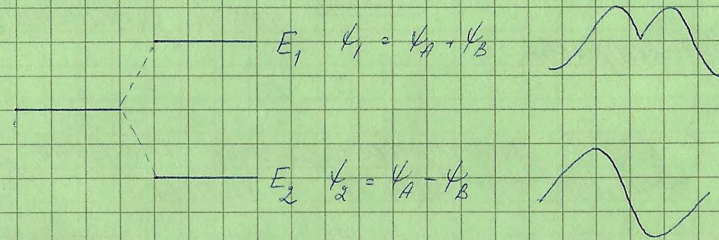 E₁ ψ₁ = ψ_A + ψ_B
E₂ ψ₂ = ψ_A - ψ_B